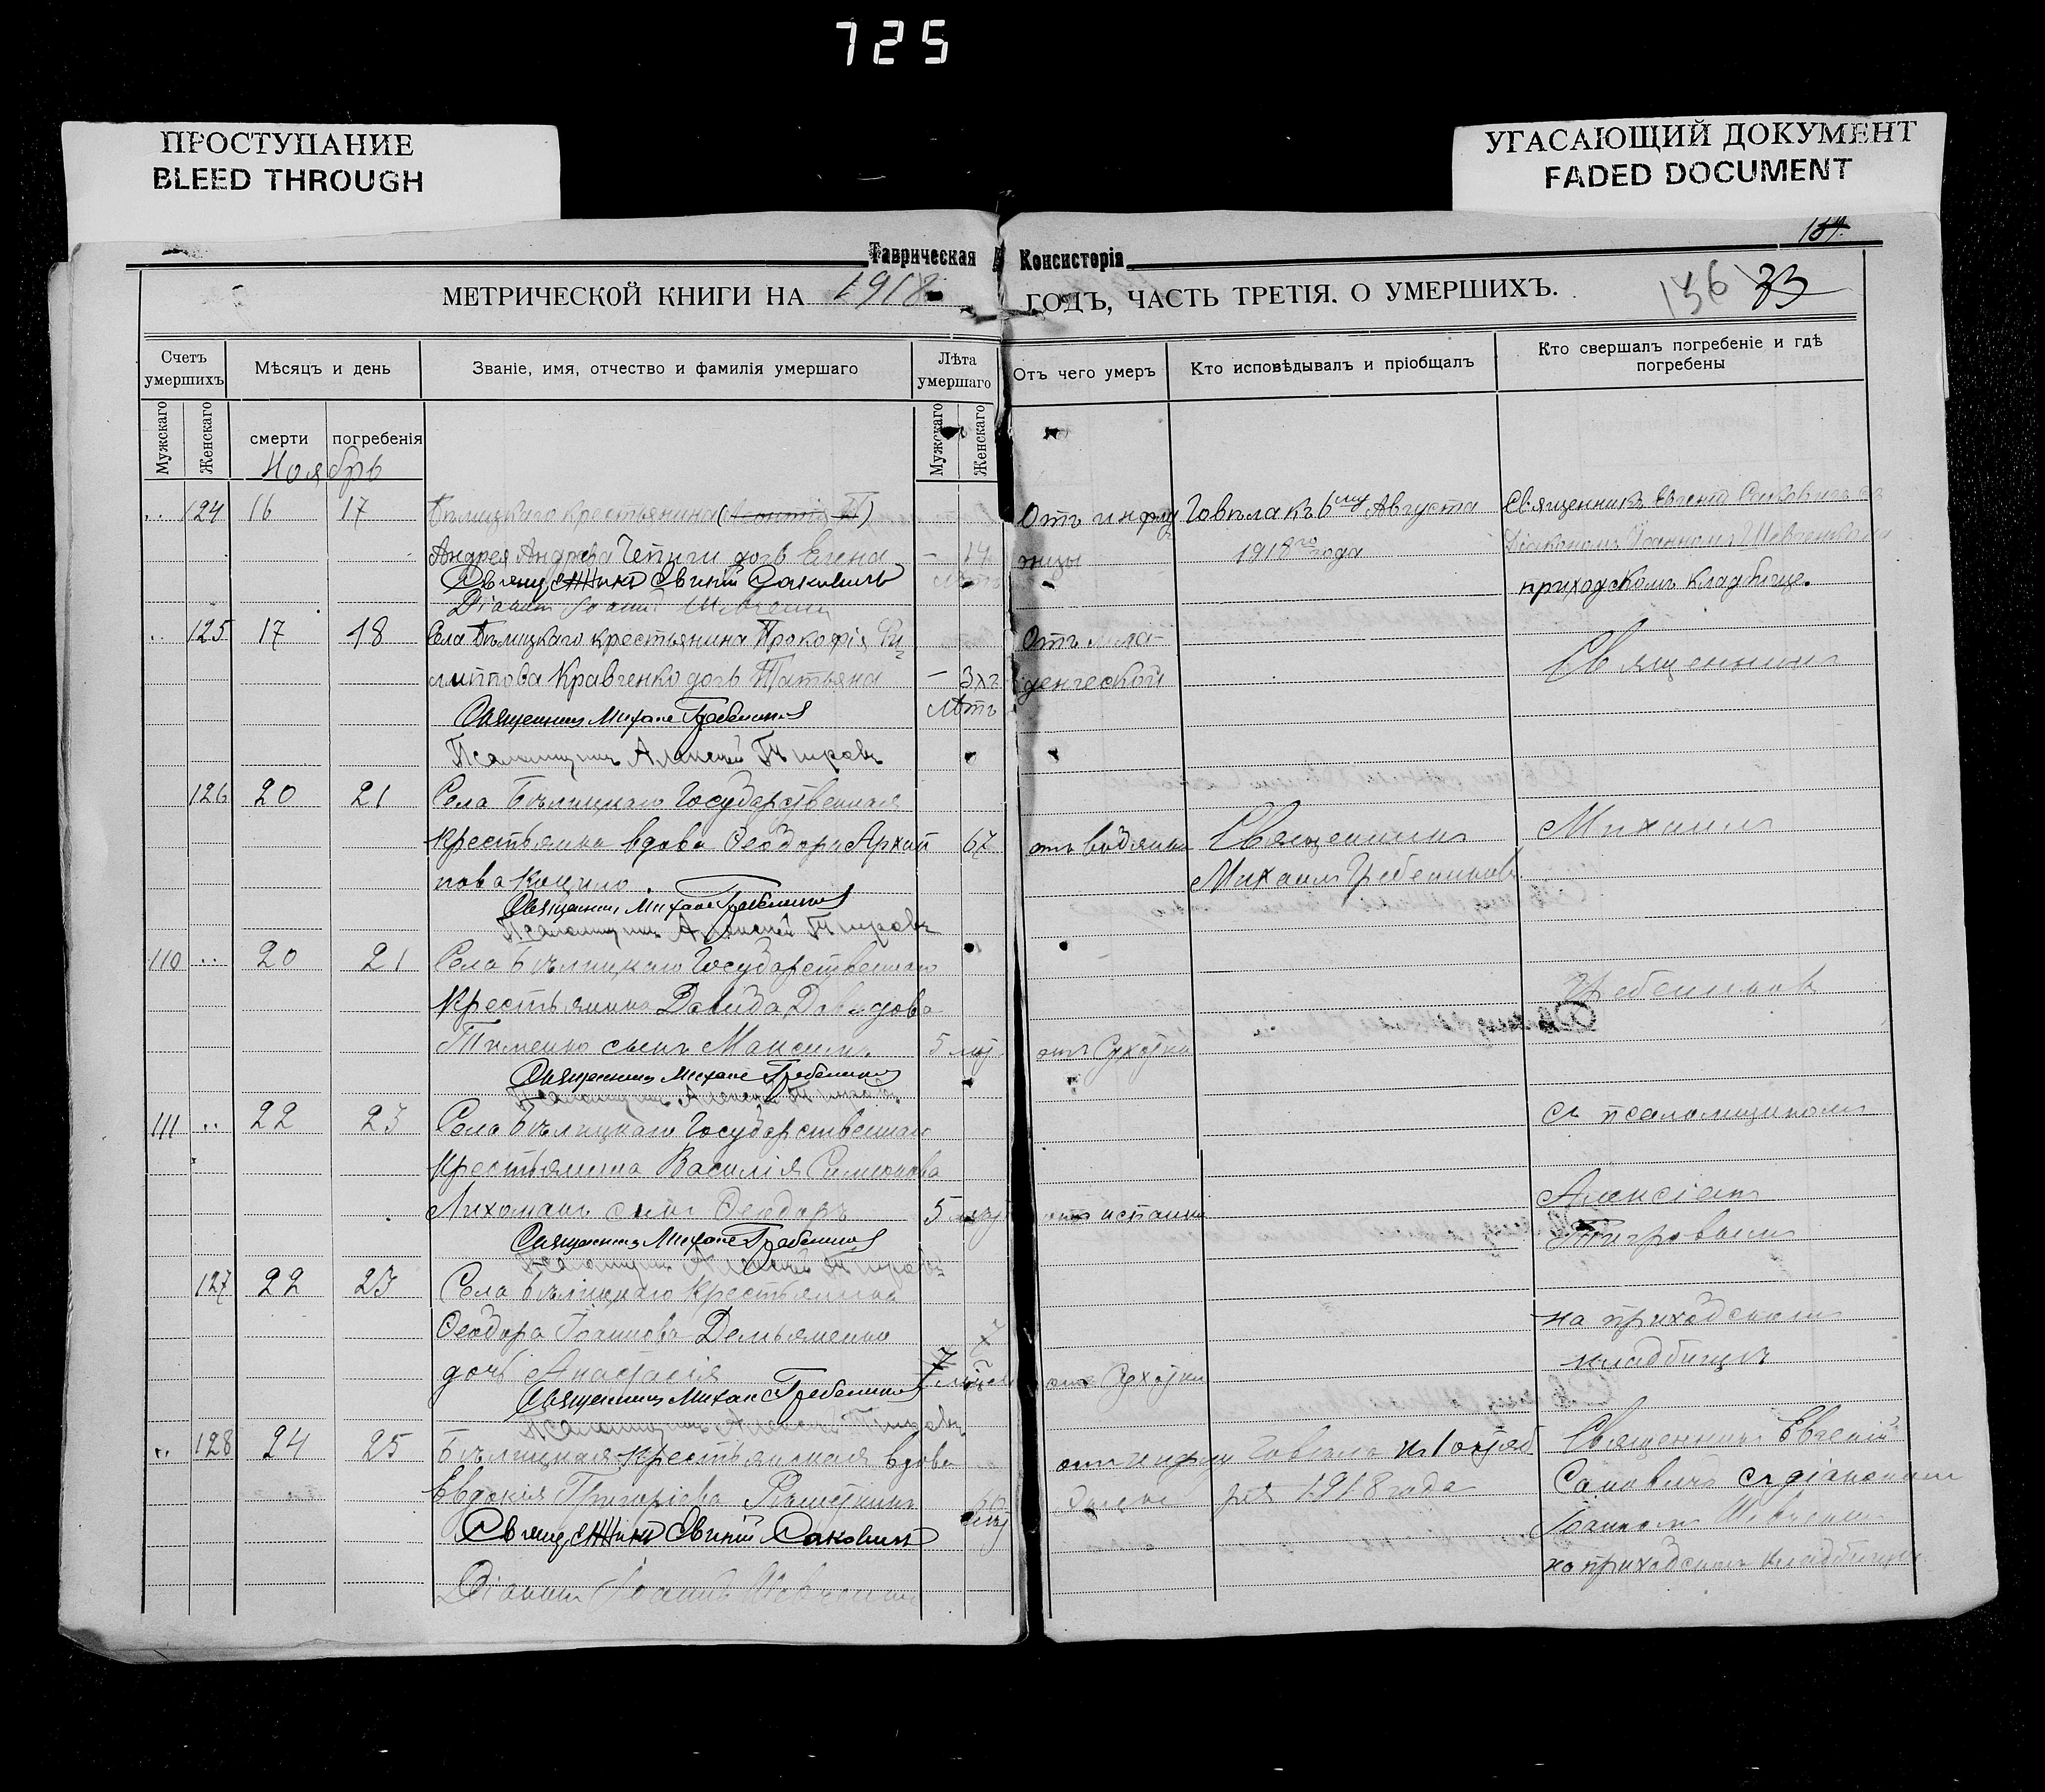 725
ПРОСТУПАНИЕ
BLEED THROUGH
УГАСАЮЩИЙ ДОКУМЕНТ
FADED DOCUMENT
Таврическая
Консисторія
МЕТРИЧЕСКОЙ КНИГИ НА 1918
ГОДЪ, ЧАСТЬ ТРЕТІЯ. О УМЕРШИХЪ.
136 33
Счетъ умершихъ
Мѣсяцъ и день
Званіе, имя, отчество и фамилія умершаго
Лѣта умершаго
Отъ чего умеръ
Кто исповѣдывалъ и пріобщалъ
Кто свершалъ погребеніе и гдѣ погребены
Мужскаго
Женскаго
смерти
погребенія
Мужскаго
Женскаго
Ноябрь
124 16 17 Бѣлицкаго крестьянина
Андрея Андреева Чепиги дочь
14
Отъ инфлу
энцы
Говѣла къ 6му Августа
1918го года
Священникъ Евгеній
приходскомъ кладбище.
Священникъ Евгеній Саковичъ
Діаконъ Іоаннъ Шевченко
125 17 18 Села Бѣлицкаго крестьянина Прокофія Фи-
липпова Кравченко дочь Татьяна
лѣтъ
Отъ мла-
денческой
Священникъ
Священникъ Михаилъ Гребенниковъ
Псаломщикъ Алексѣй Тигровъ
126 20 21 Села Бѣлицкаго Государственная
крестьянка вдова Феодора Архип
пова
67
отъ водянки
Священникъ
Михаилъ Гребенниковъ
Михаилъ
Священникъ Михаилъ Гребенниковъ
Псаломщикъ Алексѣй Тигровъ
110 20 21 Села Бѣлицкаго Государственнаго
крестьянина Давида Давидова
Тименко сынъ Максимъ.
5 лѣт
отъ Сухотки
Гребенниковъ
Священникъ Михаилъ Гребенниковъ
Псаломщикъ Алексѣй Тигровъ
111 22 23 Села Бѣлицкаго Государственнаго
крестьянина Василія Симеонова
Лихоманъ сынъ Феодоръ
5
отъ испанки
съ псаломщикомъ
Алексіемъ
Тигровымъ
Священникъ Михаилъ Гребенниковъ
Псаломщикъ Алексѣй Тигровъ
127 22 23 Села Бѣлицкаго крестьянина
Феодора Іоаннова Демьяненко
дочь Анастасія
7
отъ Сухотки
на приходскомъ
кладбищѣ
Священникъ Михаилъ Гребенниковъ
Псаломщикъ Алексѣй Тигровъ
128 24 25 Бѣлицкая крестьянская вдова
Евдокія Григорьева
отъ инфлу
Говѣла къ 1 октяб
ря 1918 года
Священникъ Евгеній
Саковичъ съ діакономъ
Іоанномъ Шевченко
на приходскомъ кладбищѣ
Священникъ Евгеній Саковичъ
Діаконъ Іоаннъ Шевченко